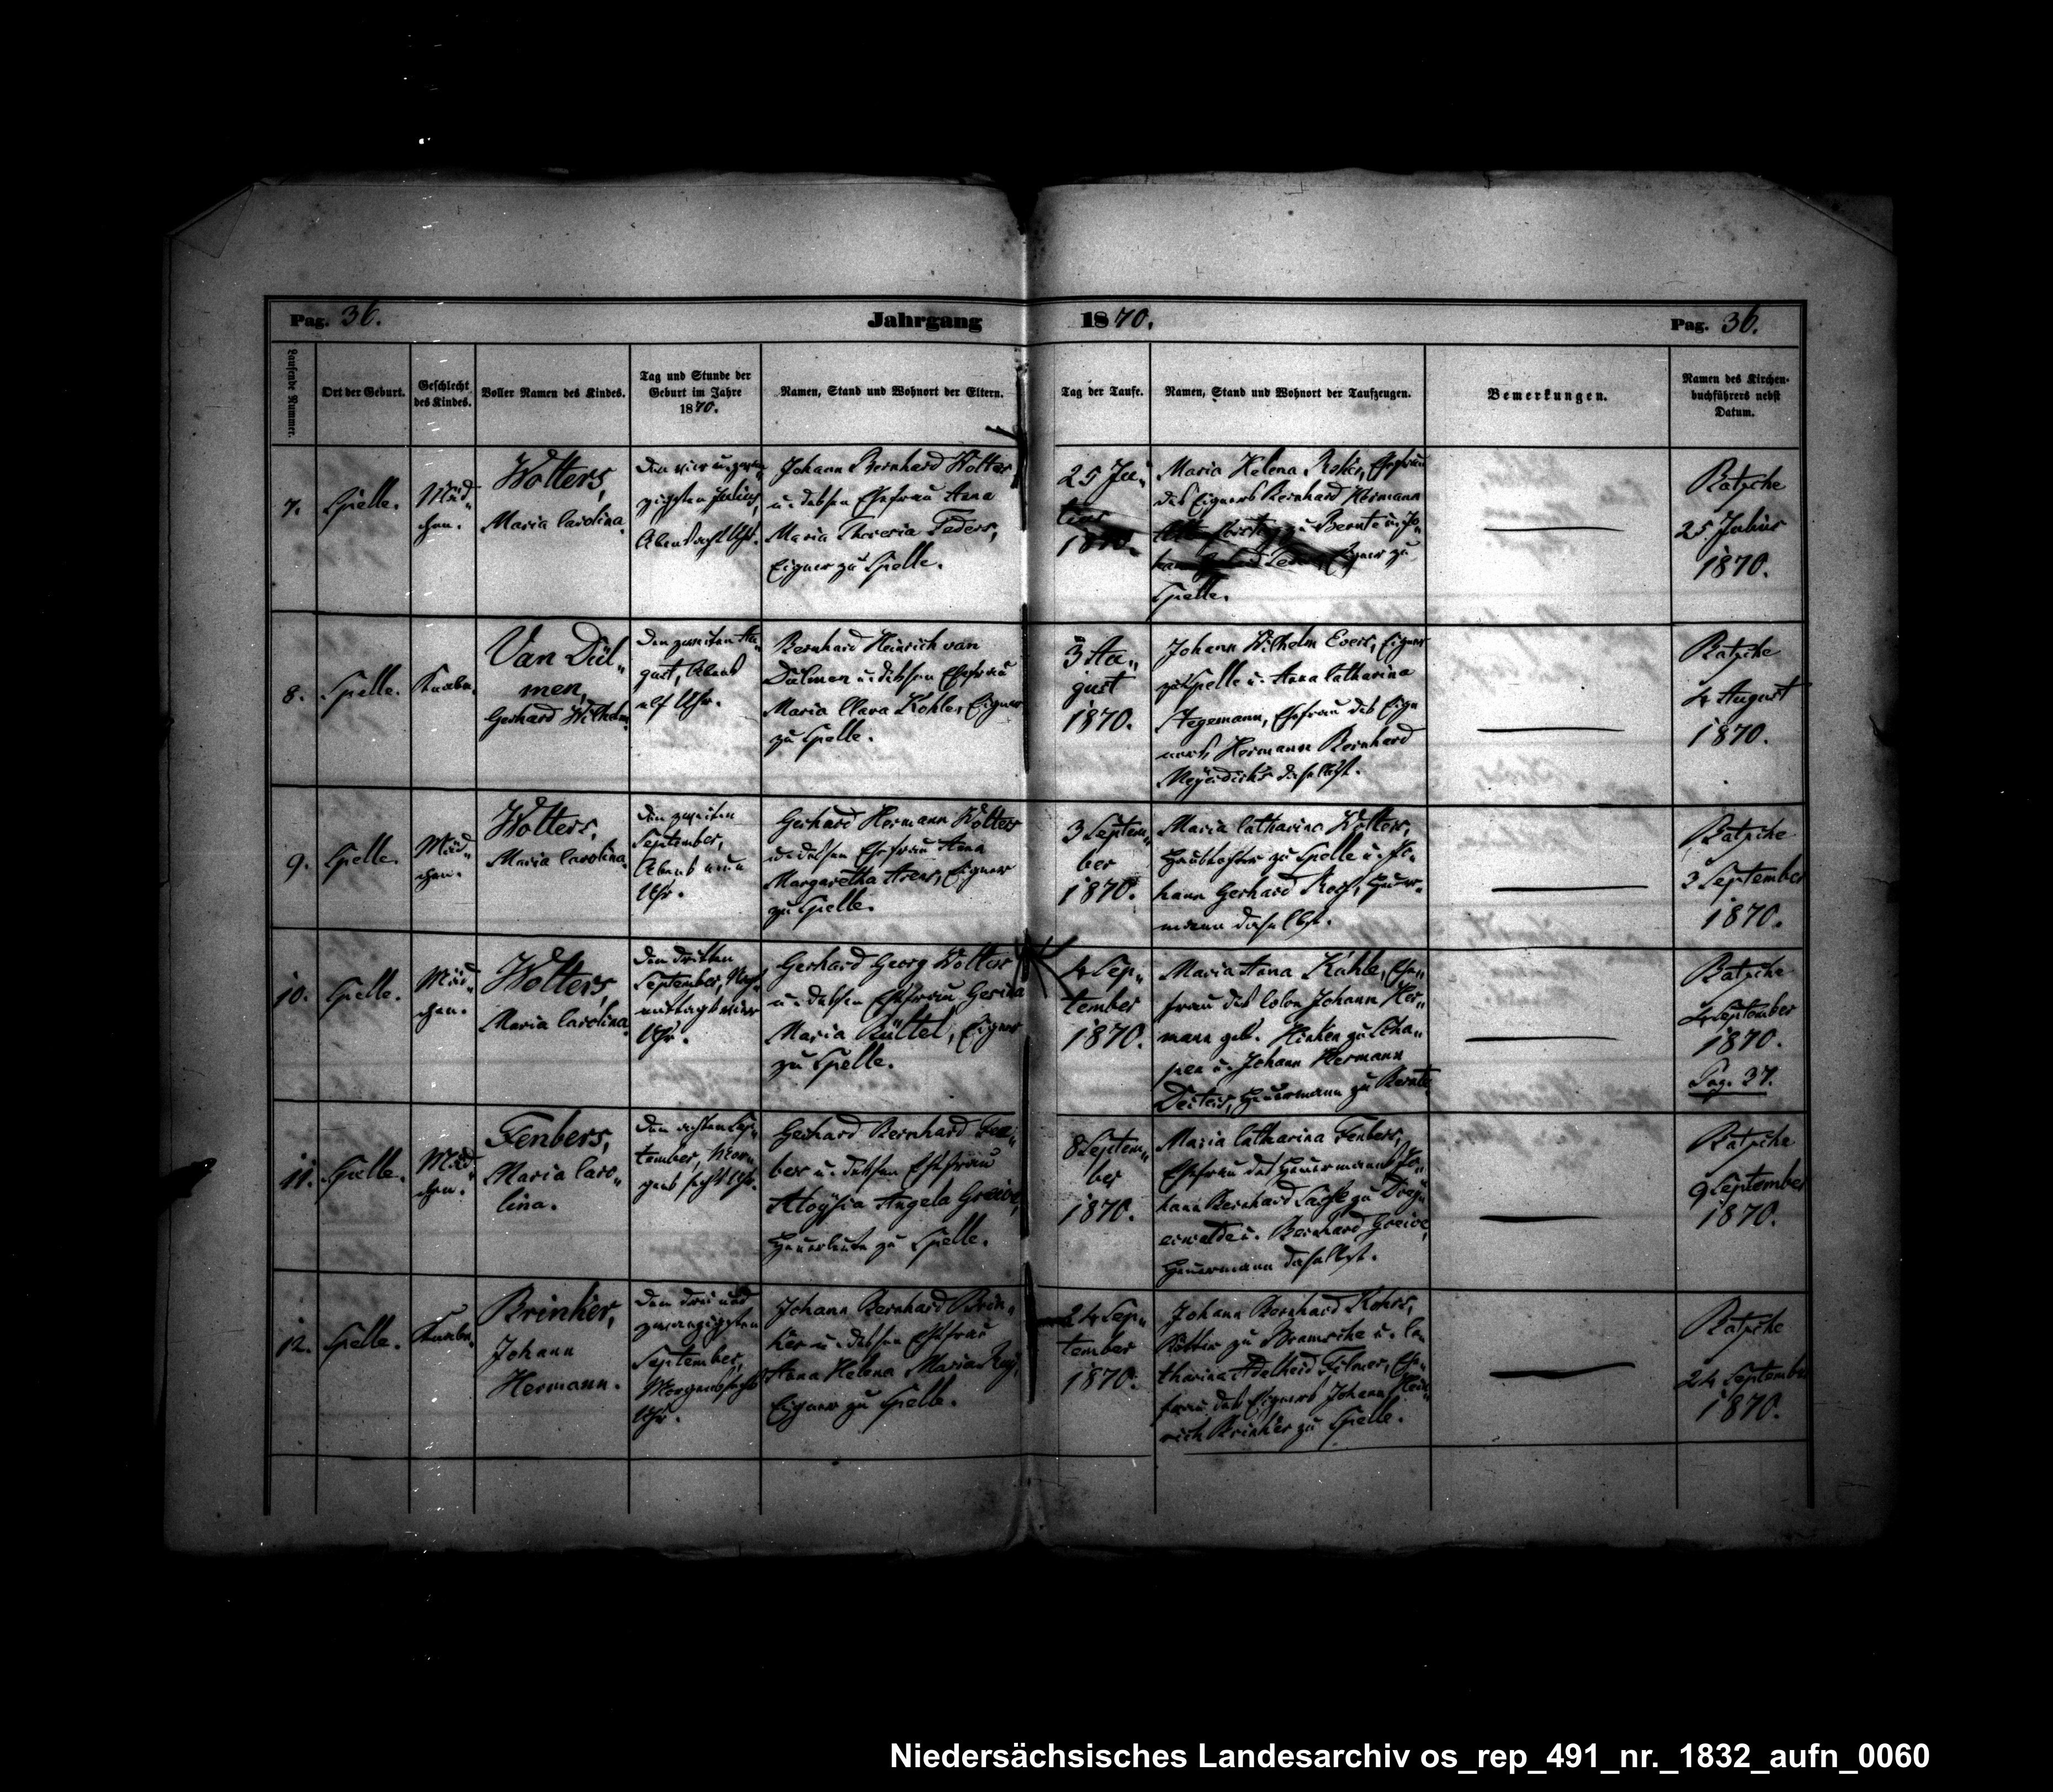 Pag. 36.
Jahrgang
1870.
Pag. 36.
Laufende Nummer.
Ort der Geburt.
Geschlecht
des Kindes.
Voller Namen des Kindes.
Tag und Stunde der
Geburt im Jahre
1870.
Namen, Stand und Wohnort der Eltern.
Tag der Taufe.
Namen, Stand und Wohnort der Taufzeugen.
Bemerkungen.
Namen des Kirchen-
buchführers nebst
Datum.
7.
Spelle.
Mäd-
chen.
Wolters,
Maria Carolina.
Den vier u. zwan
zigsten Julius,
Abends acht Uhr.
Johann Bernhard Wolters
u. dessen Ehefrau Anna
Maria Theresia Feders,
Eigner zu Spelle.
25 Ju-
lius
1870.
Maria Helena Ehefrau
des Eigners Bernhard Hermann
zu Bernte u. Jo-
Eigner zu
Spelle.
Batsche
25. Julius
1870.
8.
Spelle.
Knabe.
Van Dül-
men,
Gerhard Wilhelm
Den zweiten Au-
gust, Abends
elf Uhr.
Bernhard Heinrich van
Dülmen u. dessen Ehefrau
Maria Clara Kohle, Eigner
zu Spelle.
3 Au-
gust
1870.
Johann Wilhelm Evers, Eigner
zu Spelle u. Anna Catharina
Stegemann, Ehefrau des Eig-
ners Hermann Bernhard
daselbst.
Batsche
4 August
1870.
9.
Spelle.
Mäd-
chen.
Wolters,
Maria Carolina.
Den zweiten
September,
Abends neun
Uhr.
Gerhard Hermann Wolters
u. dessen Ehefrau Anna
Margaretha Arens, Eigner
zu Spelle.
3 Septem-
ber
1870.
Maria Catharina Wolters,
Haustochter zu Spelle u. Jo-
hann Gerhard Heuer-
mann daselbst.
Batsche
3 September
1870.
10.
Spelle.
Mäd-
chen.
Wolters,
Maria Carolina.
Den dritten
September, Nach-
mittags vier
Uhr.
Gerhard Georg Wolters
u. dessen Ehefrau Gesina
Maria Bültel, Eigner
zu Spelle.
4 Sep-
tember
1870.
Maria Anna Kuhle, Ehe-
frau des Colon Johann Her-
mann geb. Hinken zu Scha-
pen u. Johann Hermann
Deiters, Heuermann zu Bernte.
Batsche
4 September
1870.
Pag. 37.
11.
Spelle.
Mäd-
chen.
Fenbers,
Maria Caro-
lina.
Den achten Sep-
tember, Mor-
gens sechs Uhr.
Gerhard Bernhard Fen-
bers u. dessen Ehefrau
Aloysia Angela Greive,
Heuerleute zu Spelle.
8 Septem-
ber
1870.
Maria Catharina Fenbers,
Ehefrau des Heuermanns Jo-
hann Bernhard zu Drey-
erwalde u. Bernhard Greive,
Heuermann daselbst.
Batsche
9 September
1870.
12.
Spelle.
Knabe.
Brinker,
Johann
Hermann.
Den drei und
zwanzigsten
September,
Morgens sechs
Uhr.
Johann Bernhard Brin-
ker u. dessen Ehefrau
Anna Helena Maria
Eigner zu Spelle.
24 Sep-
tember
1870.
Johann Bernhard Kohrs,
Kötter zu Bramsche u. Ca-
tharina Adelheid Ehe-
frau des Eigners Johann Hein-
rich Brinker zu Spelle.
Batsche
24 September
1870.
Niedersächsisches Landesarchiv os_rep_491_nr._1832_aufn_0060